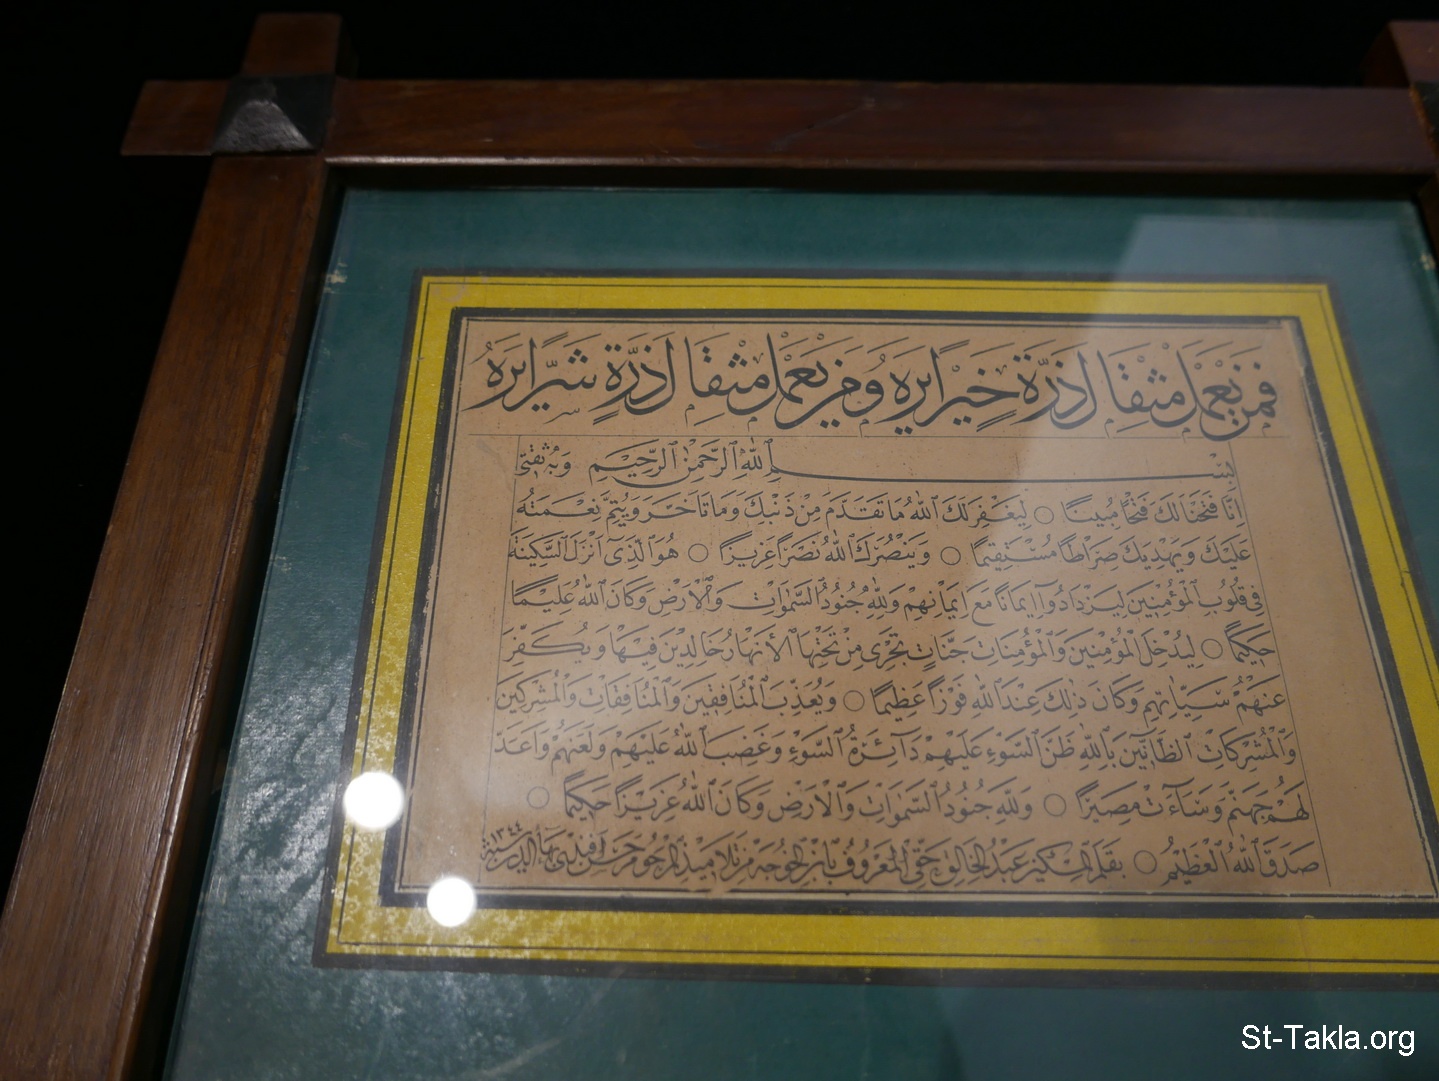 فَمَنْ يَعْمَلْ مِثْقَالَ ذَرَّةٍ خَيْرًا يَرَهُ وَمَنْ يَعْمَلْ مِثْقَالَ ذَرَّةٍ شَرًّا يَرَهُ
بِسْمِ اللّٰهِ الرَّحْمٰنِ الرَّحِيمِ وَبِهِ ثِقَتِي
اِنَّا فَتَحْنَا لَكَ فَتْحًا مُبِينًا ○ لِيَغْفِرَ لَكَ اللّٰهُ مَا تَقَدَّمَ مِنْ ذَنْبِكَ وَمَا تَاَخَّرَ وَيُتِمَّ نِعْمَتَهُ
عَلَيْكَ وَيَهْدِيَكَ صِرَاطًا مُسْتَقِيمًا ○ وَيَنْصُرَكَ اللّٰهُ نَصْرًا عَزِيزًا ○ هُوَ الَّذِي اَنْزَلَ السَّكِينَةَ
فِي قُلُوبِ الْمُؤْمِنِينَ لِيَزْدَادُوا اِيمَانًا مَعَ اِيمَانِهِمْ وَلِلّٰهِ جُنُودُ السَّمٰوَاتِ وَالْاَرْضِ وَكَانَ اللّٰهُ عَلِيمًا
حَكِيمًا ○ لِيُدْخِلَ الْمُؤْمِنِينَ وَالْمُؤْمِنَاتِ جَنَّاتٍ تَجْرِي مِنْ تَحْتِهَا الْأَنْهَارُ خَالِدِينَ فِيهَا وَيُكَفِّرَ
عَنْهُمْ سَيِّاٰتِهِمْ وَكَانَ ذٰلِكَ عِنْدَ اللّٰهِ فَوْزًا عَظِيمًا ○ وَيُعَذِّبَ الْمُنَافِقِينَ وَالْمُنَافِقَاتِ وَالْمُشْرِكِينَ
وَالْمُشْرِكَاتِ الظَّانِّينَ بِاللّٰهِ ظَنَّ السَّوْءِ عَلَيْهِمْ دَآئِرَةُ السَّوْءِ وَغَضِبَ اللّٰهُ عَلَيْهِمْ وَلَعَنَهُمْ وَاَعَدَّ
لَهُمْ جَهَنَّمَ وَسَآءَتْ مَصِيرًا ○ وَلِلّٰهِ جُنُودُ السَّمٰوَاتِ وَالْاَرْضِ وَكَانَ اللّٰهُ عَزِيزًا حَكِيمًا ○
صَدَقَ اللّٰهُ الْعَظِيمُ ○ بقلم عبد الخالق حقي المعروف بابن الخوجه من تلاميذ المرحوم افندي سنة ١٣٤٤
St-Takla.org